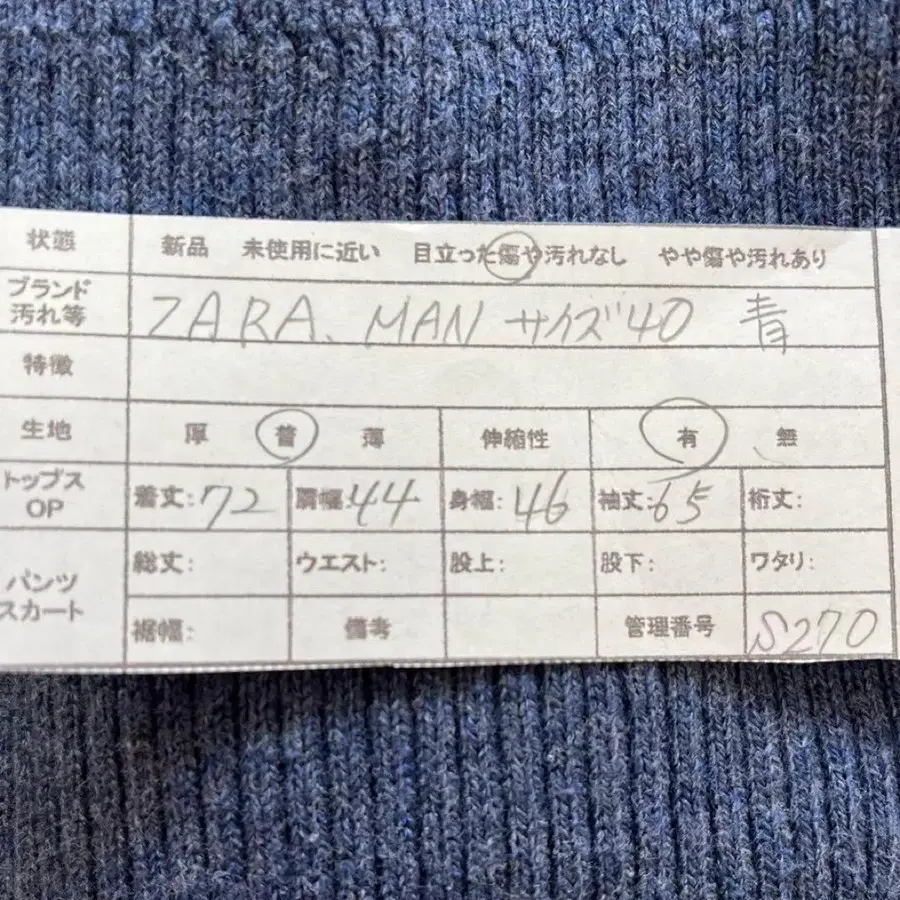 状態 新品 未使用に近い 目立った傷や汚れなし やや傷や汚れあり
ブランド
汚れ等 ZARA. MAN サイズ40 青
特徴
生地 厚 普 薄 伸縮性 有 無
トップス
OP 着丈:72 肩幅:44 身幅:46 袖丈:65 裄丈:
パンツ
スカート 総丈: ウエスト: 股上: 股下: ワタリ:
裾幅: 備考 管理番号 S270